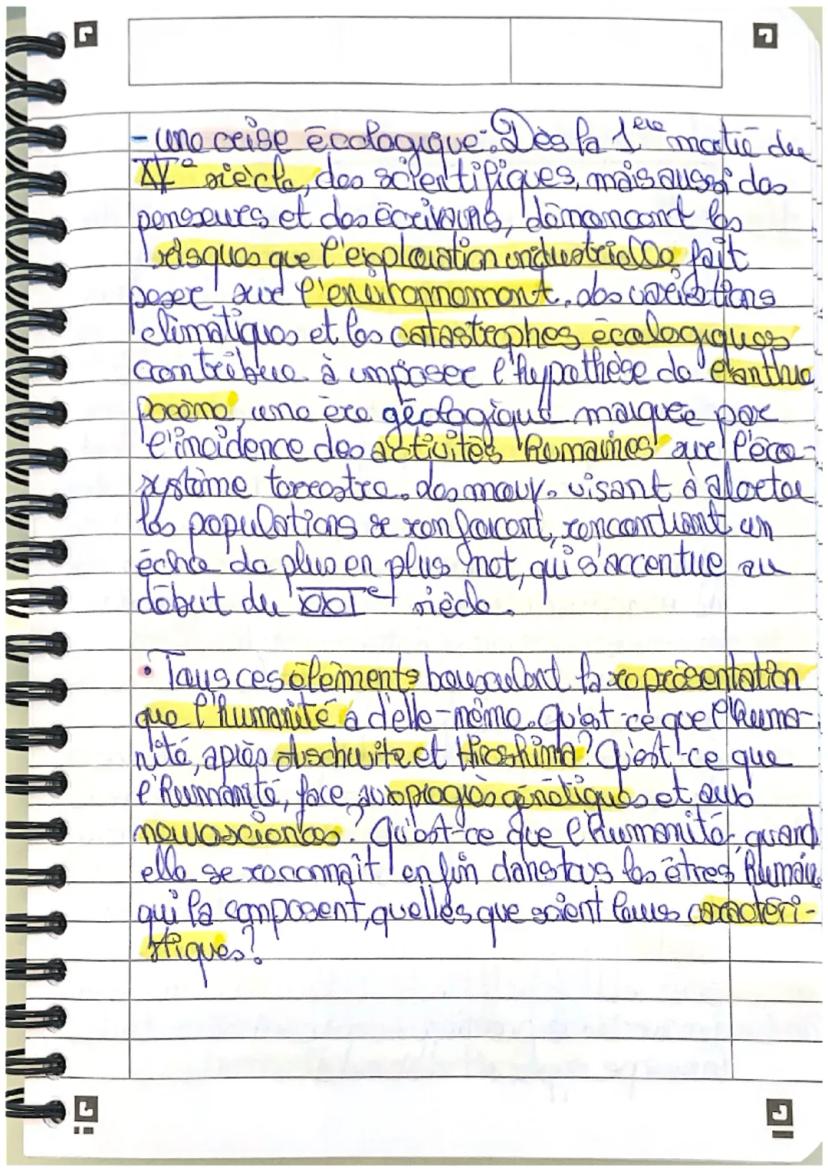 - une crise écologique. Dès la 1ère moitié du
XXe siècle, des scientifiques, mais aussi des
penseurs et des écrivains, dénoncent les
risques que l'exploitation industrielle fait
peser sur l'environnement, des variations
climatiques et les catastrophes écologiques
contribue à imposer l'hypothèse de l'anthro
pocène, une ère géologique marquée par
l'incidence des activités humaines sur l'éco-
système terrestre. des mouv. visant à alerter
les populations se renforcent, rencontrant un
écho de plus en plus net, qui s'accentue au
début du XXIe siècle.
• Tous ces éléments bousculent la représentation
que l'humanité a d'elle-même. Qu'est-ce que l'huma-
nité, après Auschwitz et Hiroshima? Qu'est-ce que
l'humanité, face aux progrès génétiques et aux
neurosciences? Qu'est-ce que l'humanité, quand
elle se reconnaît enfin dans tous les êtres humains
qui la composent, quelles que soient leurs caractéri-
stiques?